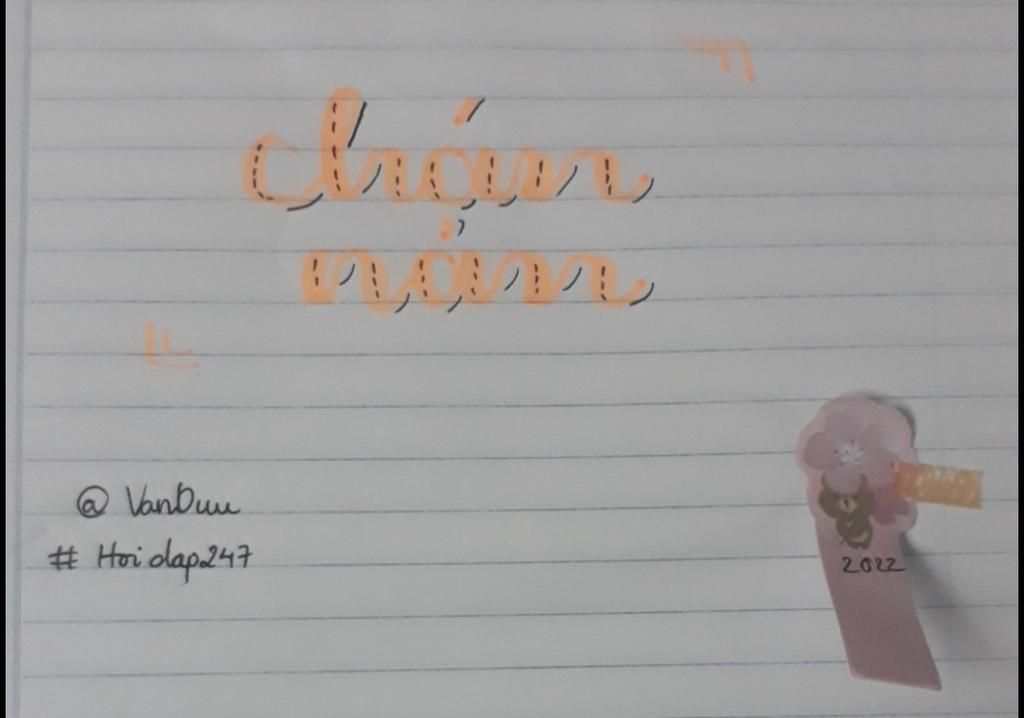 chán
nản
@ VanDuu
# Hoidap247
2022